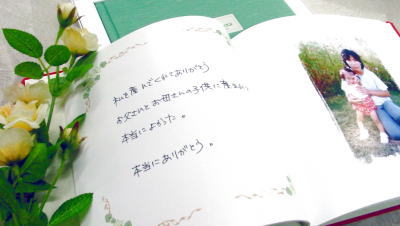 私を産んでくれてありがとう
お父さんとお母さんの子供に産まれ
本当によかった。
本当にありがとう。